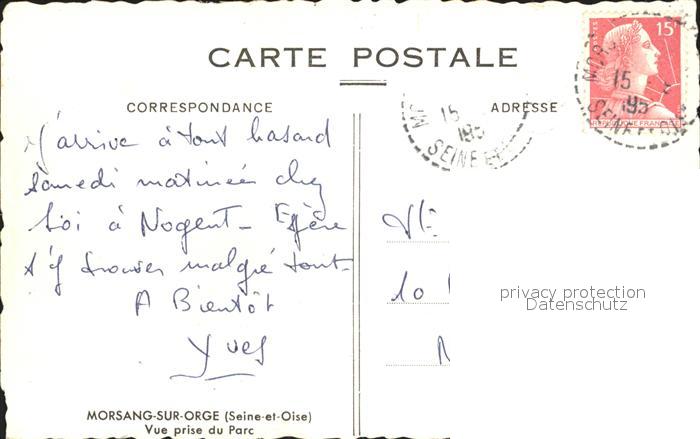 CARTE POSTALE
CORRESPONDANCE
ADRESSE
J'arrive à tout hasard
samedi matinée chez
toi à Nogent - Espère
t'y trouver malgré tout -
A Bientôt
Yves
10
privacy protection
Datenschutz
MORSANG-SUR-ORGE (Seine-et-Oise)
Vue prise du Parc
15F
15
195
SEINE ET
REPUBLIQUE FRANÇAISE
15
195
SEINE ET